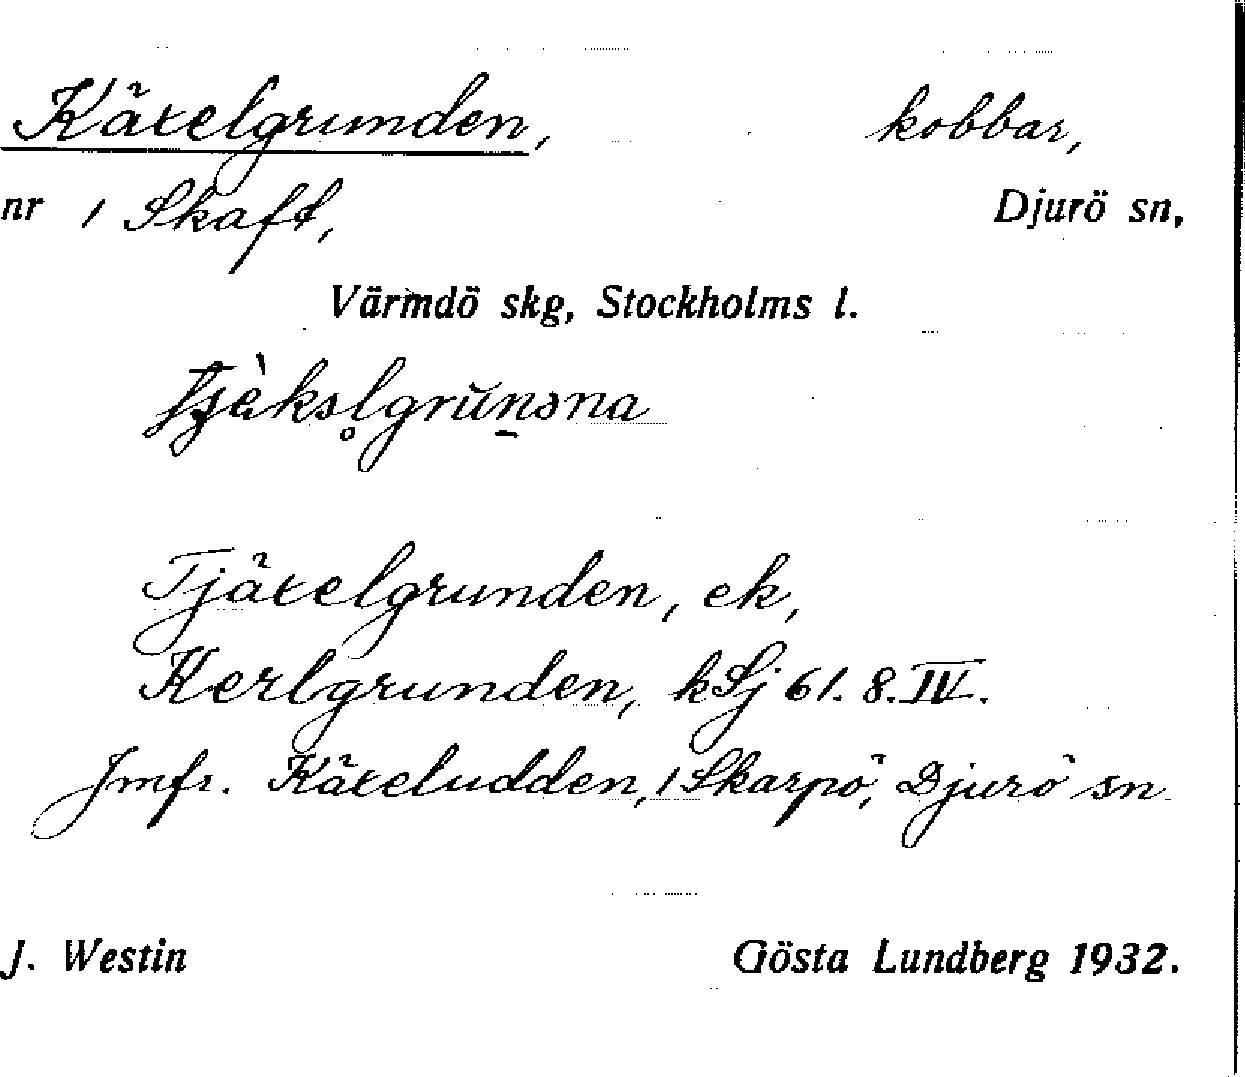 Käxelgrunden, kobbar,
nr 1 Skaft, Djurö sn,
Värmdö skg, Stockholms l.
Tjäxelgrunden, ek,
Kerlgrunden, kSj 61. 8. IV.
Jmfr. Käxeludden, 1 Skarpö, Djurö sn
J. Westin Gösta Lundberg 1932.